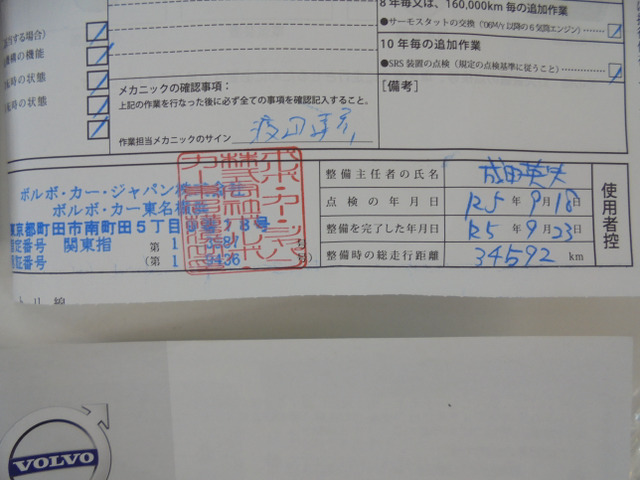 8年毎又は、160,000km 毎の追加作業
●サーモスタットの交換 ('06M/Y以降の6気筒エンジン)
10年毎の追加作業
●SRS 装置の点検 (規定の点検基準に従うこと)
[備考]
する場合)
機構の機能
時の状態
転時の状態
メカニックの確認事項：
上記の作業を行なった後に必ず全ての事項を確認記入すること。
作業担当メカニックのサイン
ボルボ・カー・ジャパン株式会社
ボルボ・カー東名横浜
東京都町田市南町田5丁目
指定番号 関東指 第1
認証番号 (第1 9436 号)
整備主任者の氏名
点検の年月日 R5年9月18日
整備を完了した年月日 R5年9月23日
整備時の総走行距離 34592 km
使用者控
VOLVO